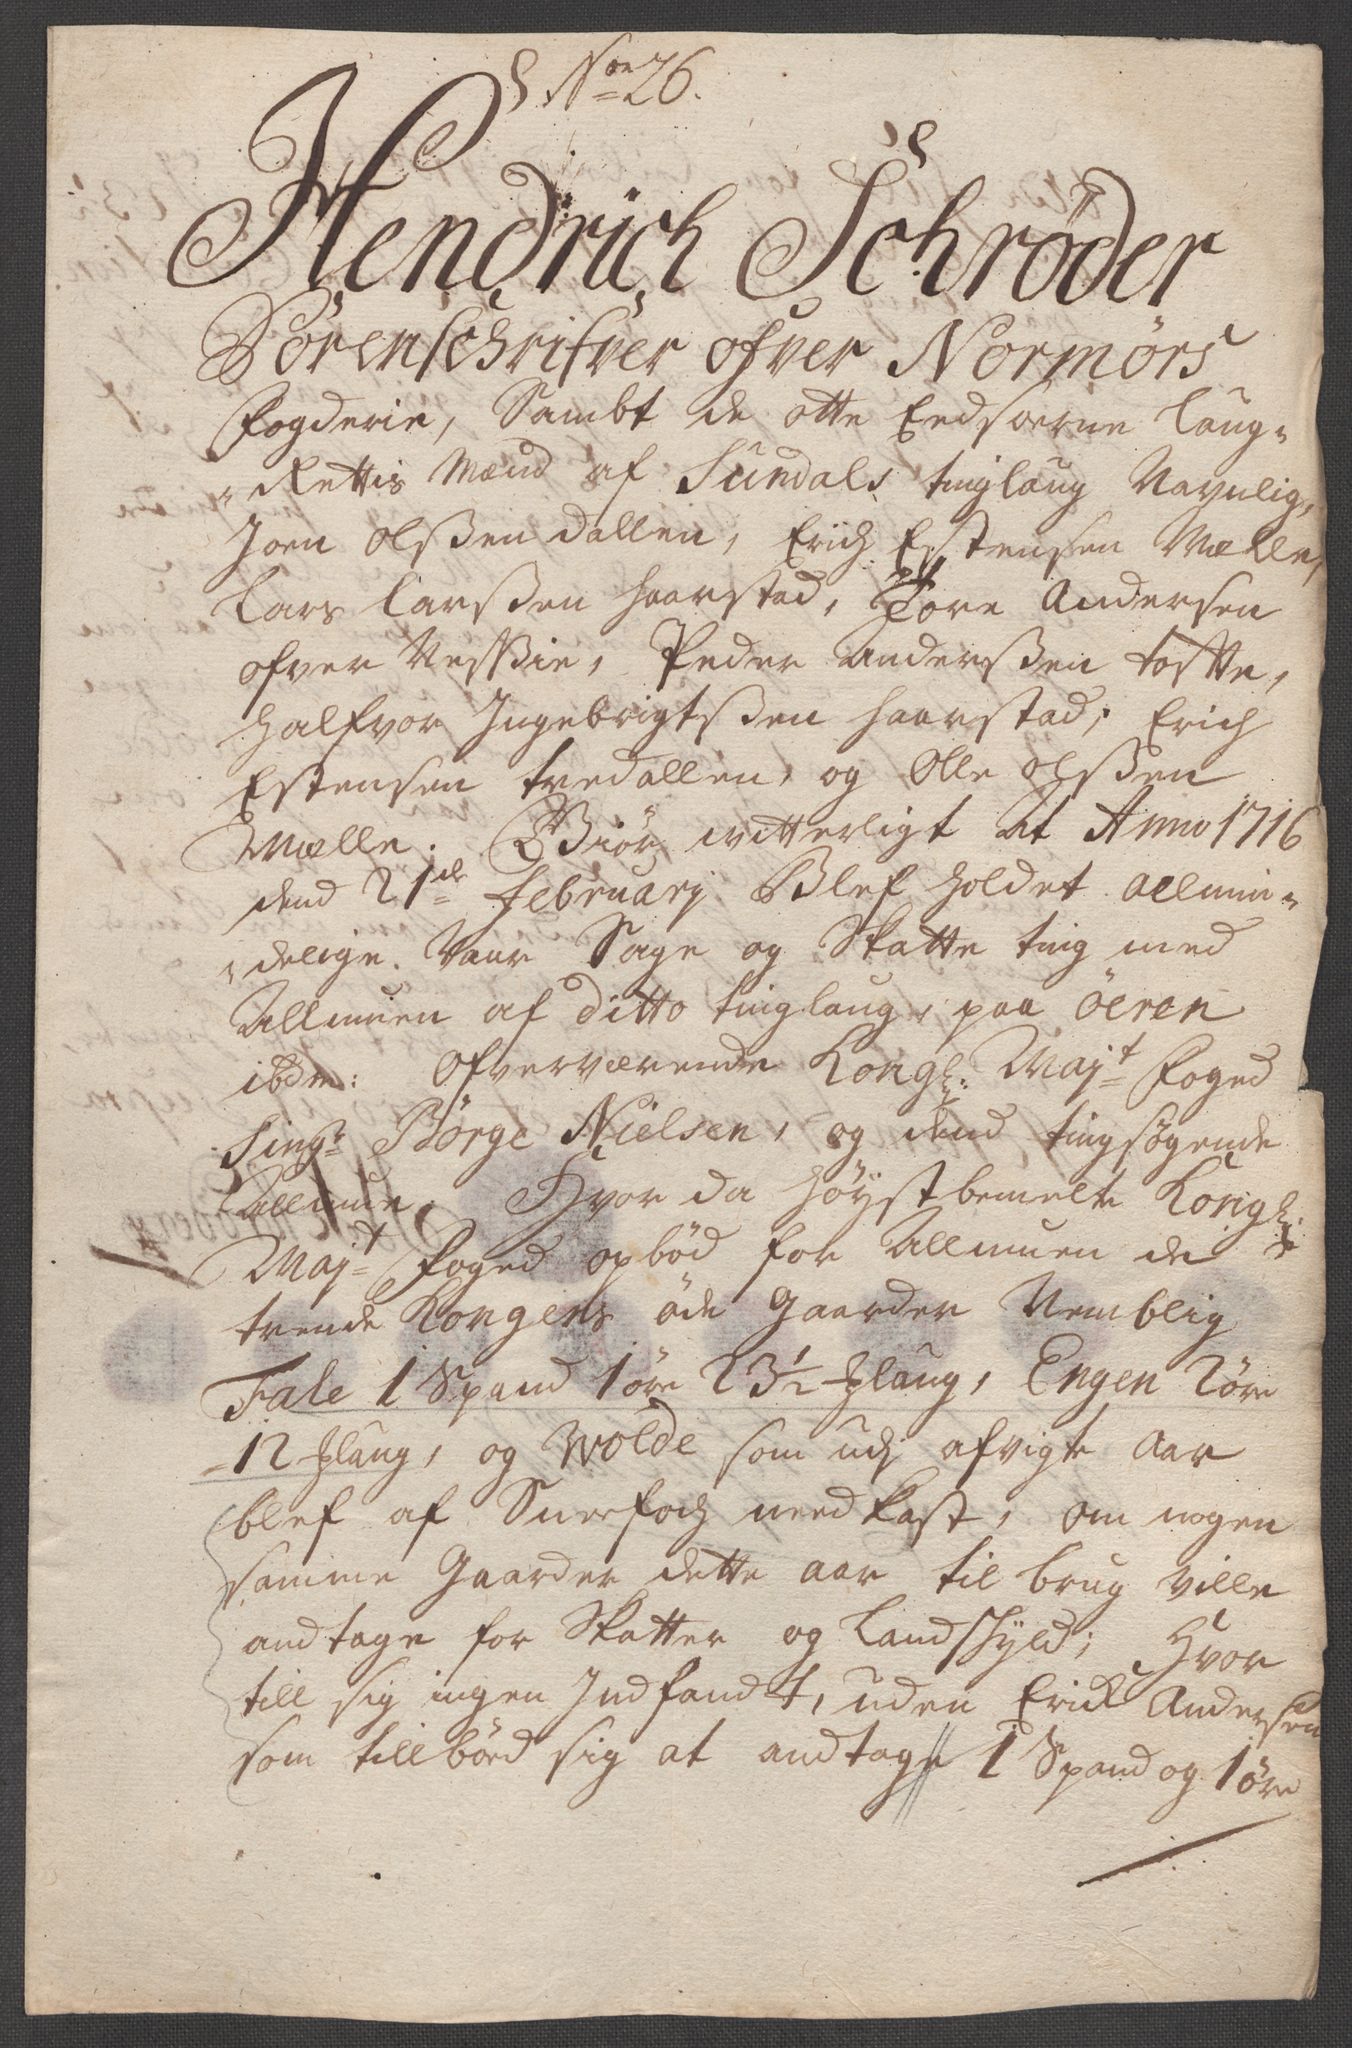 Noe 26.
Hendrich Schrøder
Sörenschrifver ofver Normörs
Fogderie, Sambt de otte Eedsorne Laug-
Rettis Mænd af Sundals tinglaug Navnlig,
Joen Olsßen dallen, Erich Estensen Mælle,
Lars Larsßen Haarstad, Tore Andersen
ofver Vessie, Peder Andersßen Tofte,
Halfvor Ingebrigtsßen Haarstad, Erich
Estensen tredallen, og Olle Olsßen
Mælle. Giör witterligt At Anno 1716
dend 21de February Blef holdet Allmin-
delige Vaar Sage og Skatte ting med
Allmuen af ditto tinglaug, paa Öeren
ibdm: Ofverværende Kongl: Majt Foged
Singr Börge Nielsen, og dend tingsøgende
Allmue, Hvor da høystbemelte Kongl:
Majt Foged opbød for Allmuen de
trende Kongens øde Gaarder Nemblig
Fale 1 Spand 1 øre 23½ Mlaug, Engen 2 øre
12 Mlaug, og Wolde som udj afvigte Aar
blef af Sneefoch need kast, om nogen
samme Gaarder dette aar til brug ville
andtage for Skatter og Landschyld; Hvor
till sig ingen Indfandt, uden Erick Andersen
som tillbød sig at andtage 1 Spand og 1 øre